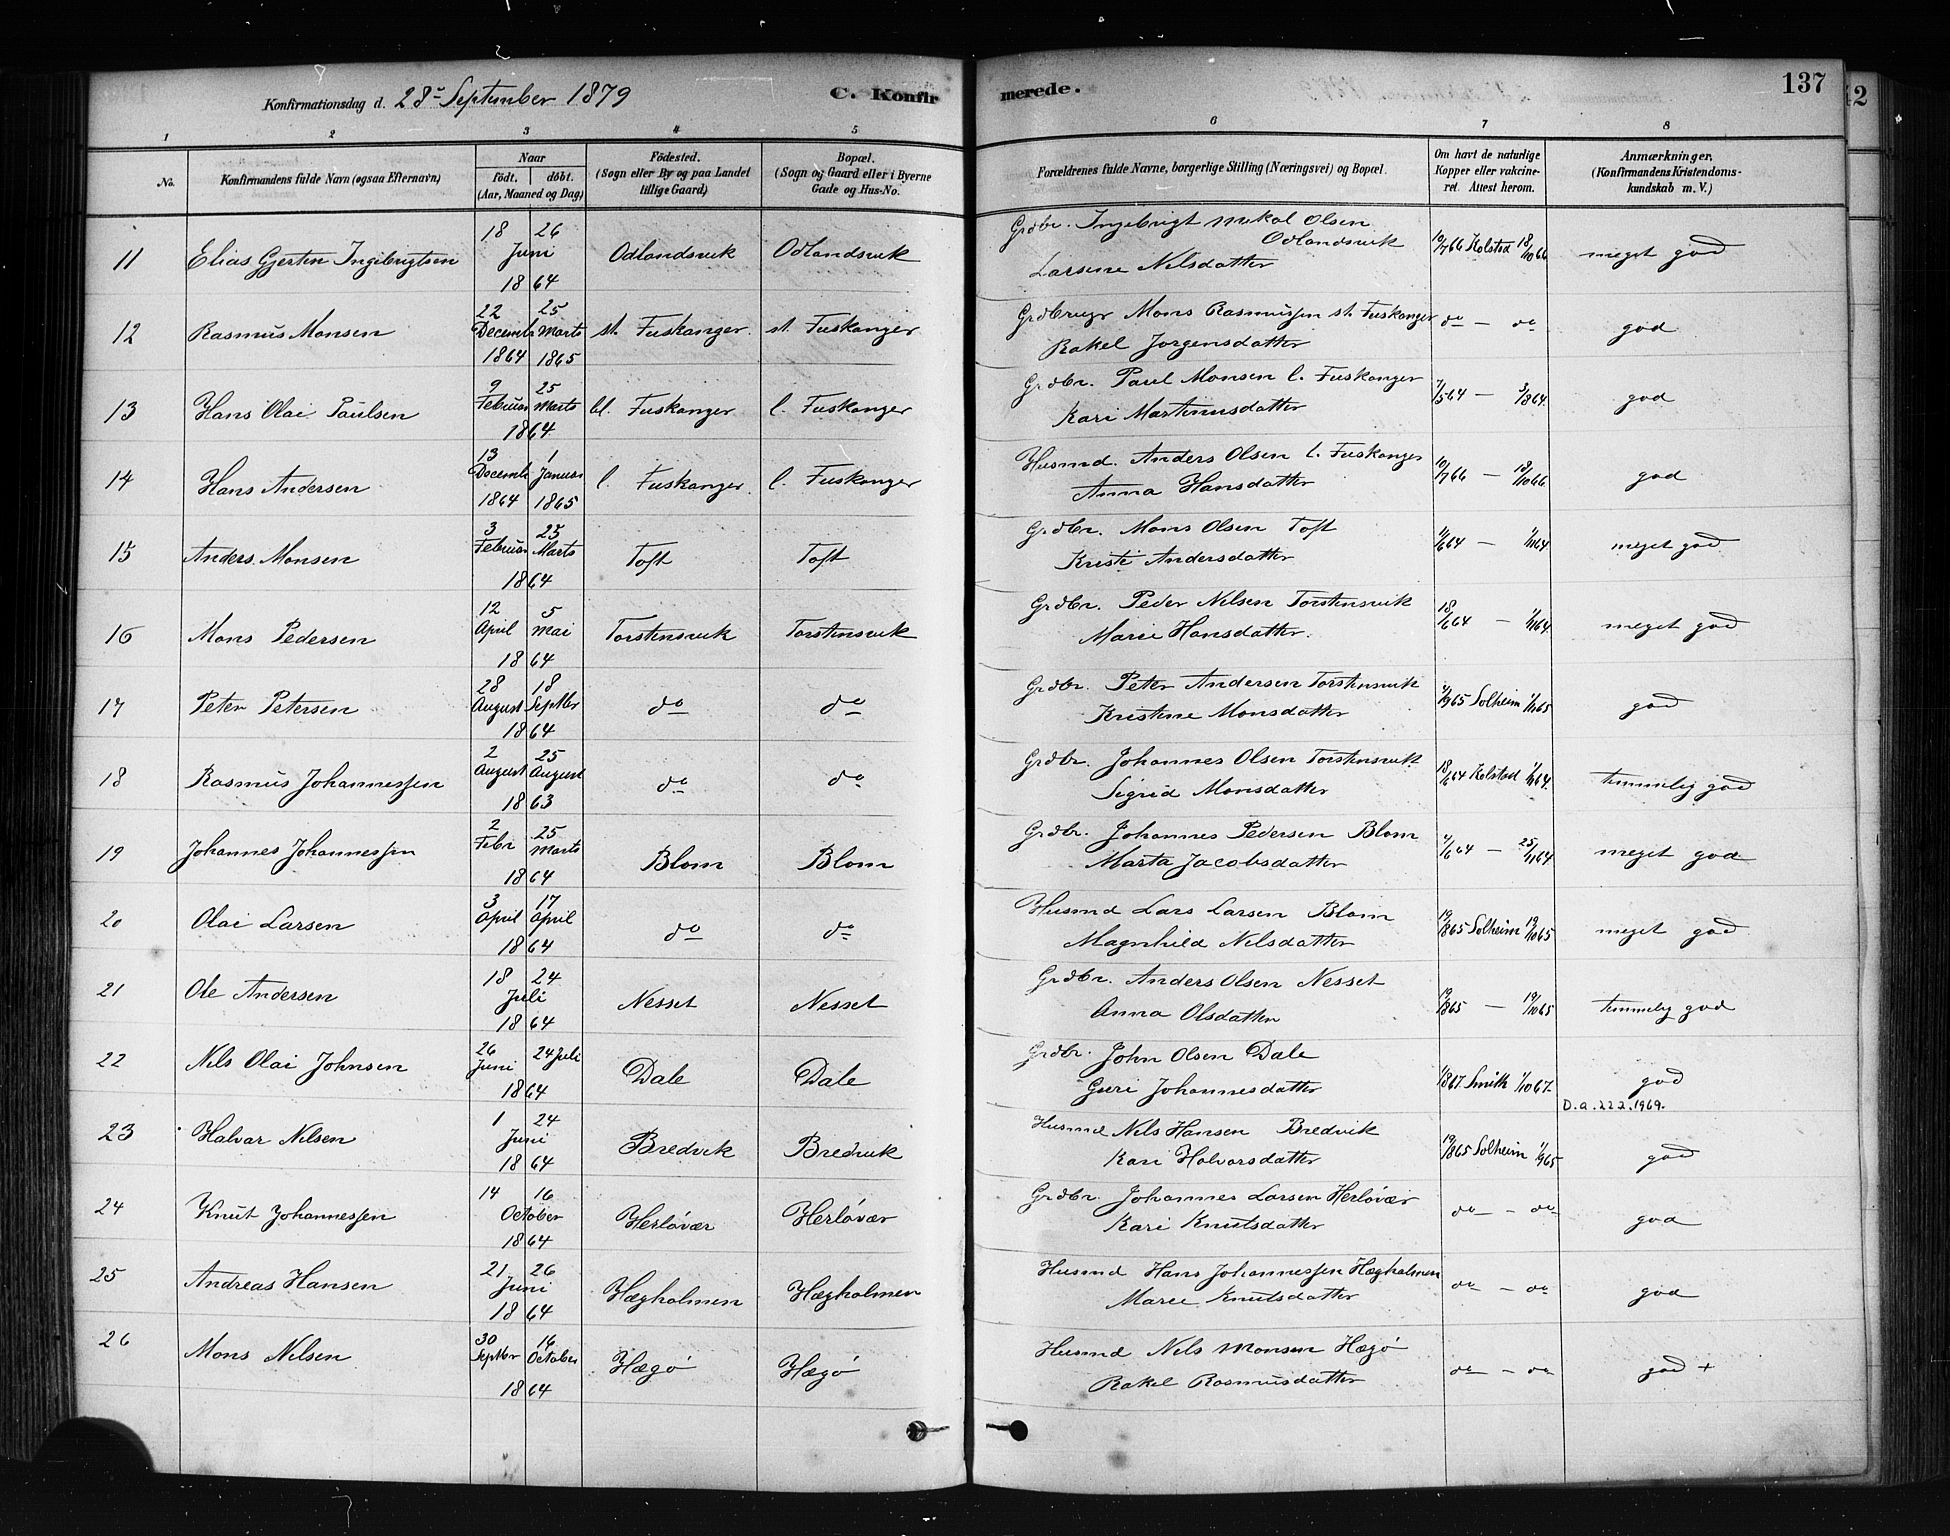 Konfirmationsdag d. 28. September 1879 C. Konfirmerede. 137
1 2 3 4 5 6 7 8
No. Konfirmandens fulde Navn (ogsaa Efternavn) Naar født. døbt. (Aar, Maaned og Dag) Födested. (Sogn eller By og paa Landet tillige Gaard) Bopæl. (Sogn og Gaard eller i Byerne Gade og Hus-No. Forældrenes fulde Navne, borgerlige Stilling (Næringsvei) og Bopæl. Om havt de naturlige Kopper eller vakcineret. Attest herom. Anmærkninger. (Konfirmandens Kristendomskundskab m. V.)
11 Elias Gjertin Ingebrigtsen 18 26 Juni 1864 Odlandsvik Odlandsvik Grdbr. Ingebrigt Mikal Olsen Odlandsvik
Larsine Nilsdatter 10/7 66 Kolstad 18/10 66 meget god
12 Rasmus Monsen 22 Decemb 1864 25 Marts 1865 st. Fuskanger st. Fuskanger Grdbrugr Mons Rasmussen st. Fuskanger
Rakel Jorgensdatter do — do god
13 Hans Olai Paulsen 9 Februar 25 Marts 1864 l. Fuskanger l. Fuskanger Grdbr. Paul Monsen l. Fuskanger
Kari Martinusdatter 7/5 64 — 3/8 64. god
14 Hans Andersen 13 Decemb 1864 1 Januar 1865 l. Fuskanger. l. Fuskanger Husmd. Anders Olsen l. Fuskanger
Anna Hansdatter 10/7 66 — 18/10 66 god
15 Anders Monsen 3 Februar 25 Marts 1864 Toft Toft Grdbr. Mons Olsen Toft
Kristi Andersdatter meget god
16 Mons Pedersen 12 April 5 Mai 1864 Torstensvik Torstensvik Grdbr. Peder Nilsen Torstensvik
Marie Hansdatter. 18/6 64 — 1/11 64. meget god
17 Peter Petersen 28 August 18 Septbr 1864 do do Grdbr. Peter Andersen Torstensvik
Kristine Monsdatter Solheim god
18 Rasmus Johannessen 2 August 25 August 1863 do do Grdbr. Johannes Olsen Torstensvik
Sigrid Monsdatter 18/6 64 Kolstad 1/11 64. temmelig god
19 Johannes Johannessen 2 Febr 25 Marts 1864 Blom Blom Grdbr. Johannes Pedersen Blom
Marta Jacobsdatter meget god
20 Olai Larsen 3 April 17 April 1864 do do Husmd Lars Larsen Blom
Magnhild Nilsdatter 19/8 65 Solheim 19/10 65 meget god
21 Ole Andersen 18 24 Juli 1864 Nesset Nesset Grdbr. Anders Olsen Nesset
Anna Olsdatter 19/8 65 — 19/10 65 temmelig god
22 Nils Olai Johnsen 26 Juni 24 Juli 1864 Dale Dale Grdbr. John Olsen Dale
Guri Johannesdatter 1/8 67. Smith 1/10 67. god
D.a. 22 2. 1969.
23 Halvar Nilsen 1 24 Juni 1864 Bredvik Bredvik Husmd Nils Hansen Bredvik
Kari Halvorsdatter 19/8 65 Solheim 1/9 65 god
24 Knut Johannessen 14 16 October 1864 Herløvær Herløvær Grdbr. Johannes Larsen Herløvær
Kari Knutsdatter do — do god
25 Andreas Hansen 21 26 Juni 1864 Hægholmen Hægholmen Husmd Hans Johannessen Hægholmen
Marie Knutsdatter do — do god
26 Mons Nilsen 30 Septbr 16 October 1864 Hægø Hægø Husmd Nils Monsen Hægø
Rakel Rasmusdatter do — do god +